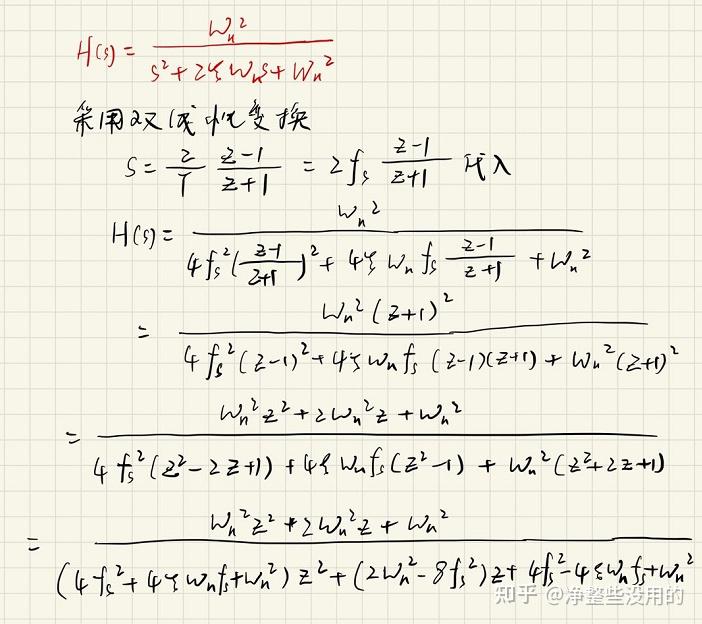 H(s) = Wn² / (s² + 2ξWns + Wn²)
采用双线性变换
S = 2/T (z-1)/(z+1) = 2fs (z-1)/(z+1) 代入
H(s) = Wn² / (4fs²((z-1)/(z+1))² + 4ξWnfs (z-1)/(z+1) + Wn²)
= Wn²(z+1)² / (4fs²(z-1)² + 4ξWnfs(z-1)(z+1) + Wn²(z+1)²)
= (Wn²z² + 2Wn²z + Wn²) / (4fs²(z²-2z+1) + 4ξWnfs(z²-1) + Wn²(z²+2z+1))
= (Wn²z² + 2Wn²z + Wn²) / ((4fs² + 4ξWnfs + Wn²)z² + (2Wn² - 8fs²)z + 4fs² - 4ξWnfs + Wn²)
知乎 @净整些没用的